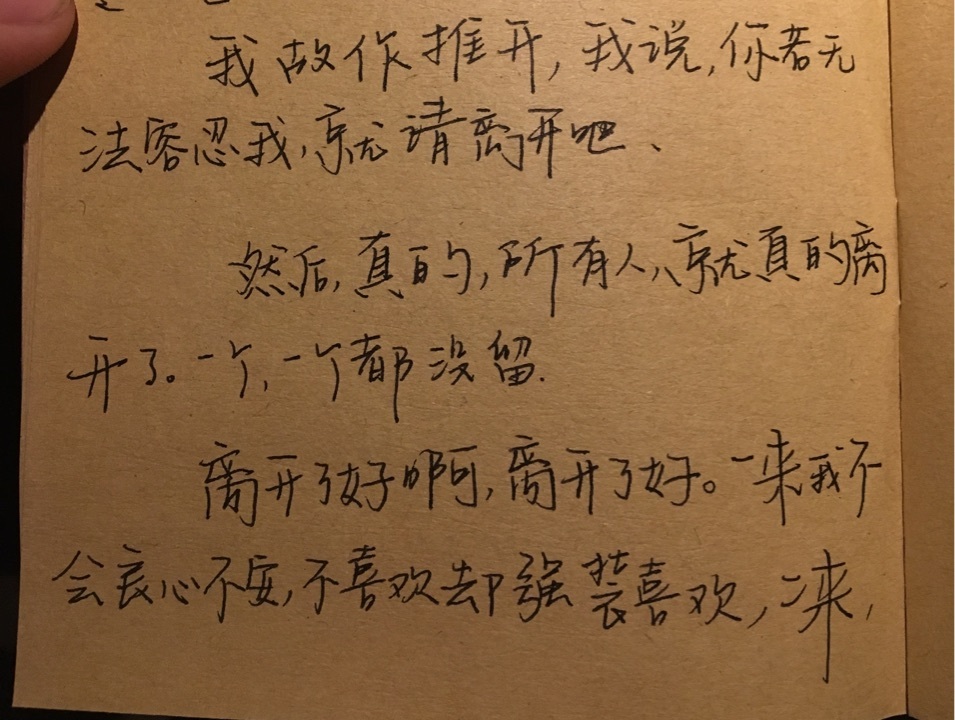 我故作推开,我说,你若无
法容忍我,就请离开吧、
然后,真的,所有人,就真的离
开了。一个,一个都没留.
离开了好啊,离开了好。一来我不
会良心不安,不喜欢却强装喜欢,二来,